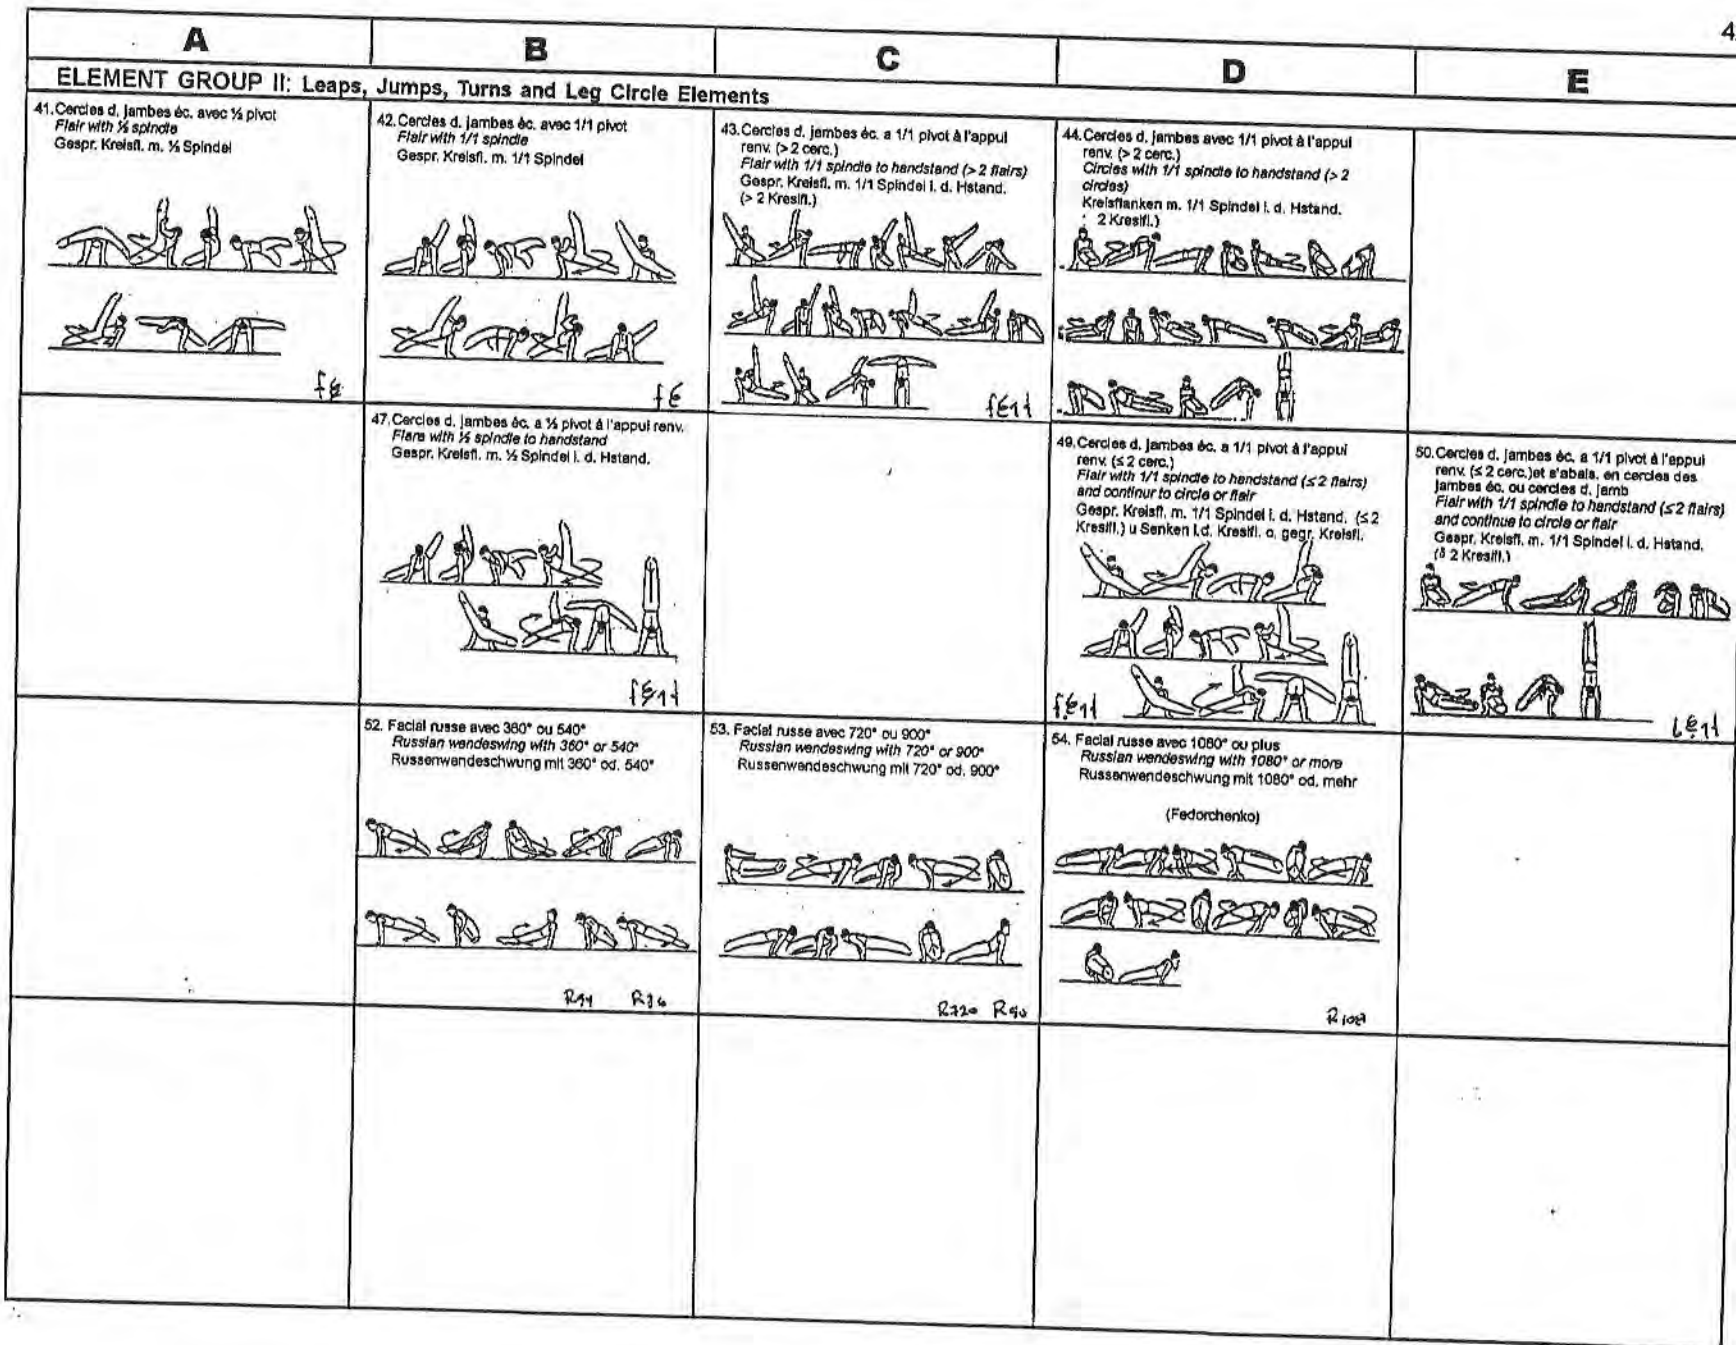 4
A
B
C
D
E
ELEMENT GROUP II: Leaps, Jumps, Turns and Leg Circle Elements
41.Cercles d. jambes éc. avec ½ pivot
Flair with ½ spindle
Gespr. Kreisfl. m. ½ Spindel
42.Cercles d. jambes éc. avec 1/1 pivot
Flair with 1/1 spindle
Gespr. Kreisfl. m. 1/1 Spindel
43.Cercles d. jambes éc. a 1/1 pivot à l'appui
renv. (> 2 cerc.)
Flair with 1/1 spindle to handstand (> 2 flairs)
Gespr. Kreisfl. m. 1/1 Spindel i. d. Hstand.
(> 2 Kresifl.)
44.Cercles d. jambes avec 1/1 pivot à l'appui
renv. (> 2 cerc.)
Circles with 1/1 spindle to handstand (> 2
circles)
Kreisflanken m. 1/1 Spindel i. d. Hstand.
2 Kresifl.)
47.Cercles d. jambes éc. a ½ pivot à l'appui renv.
Flare with ½ spindle to handstand
Gespr. Kreisfl. m. ½ Spindel i. d. Hstand.
49.Cercles d. jambes éc. a 1/1 pivot à l'appui
renv. (≤ 2 cerc.)
Flair with 1/1 spindle to handstand (≤ 2 flairs)
and continur to circle or flair
Gespr. Kreisfl. m. 1/1 Spindel i. d. Hstand. (≤ 2
Kresifl.) u Senken i.d. Kresifl. o. gegr. Kreisfl.
50.Cercles d. jambes éc. a 1/1 pivot à l'appui
renv. (≤ 2 cerc.)et s'abais. en cercles des
jambes éc. ou cercles d. jamb
Flair with 1/1 spindle to handstand (≤ 2 flairs)
and continue to circle or flair
Gespr. Kreisfl. m. 1/1 Spindel i. d. Hstand.
2 Kresifl.)
52. Facial russe avec 360° ou 540°
Russian wendeswing with 360° or 540°
Russenwendeschwung mit 360° od. 540°
53. Facial russe avec 720° ou 900°
Russian wendeswing with 720° or 900°
Russenwendeschwung mit 720° od. 900°
54. Facial russe avec 1080° ou plus
Russian wendeswing with 1080° or more
Russenwendeschwung mit 1080° od. mehr
(Fedorchenko)
R720